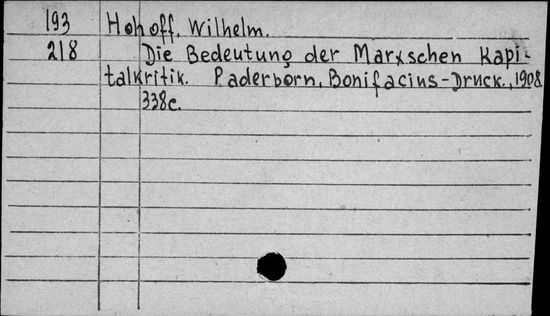 193 Hohoff, Wilhelm.
218 Die Bedeutung der Marxschen Kapi-
talkritik. Paderborn, Bonifacius-Druck., 1908.
338c.